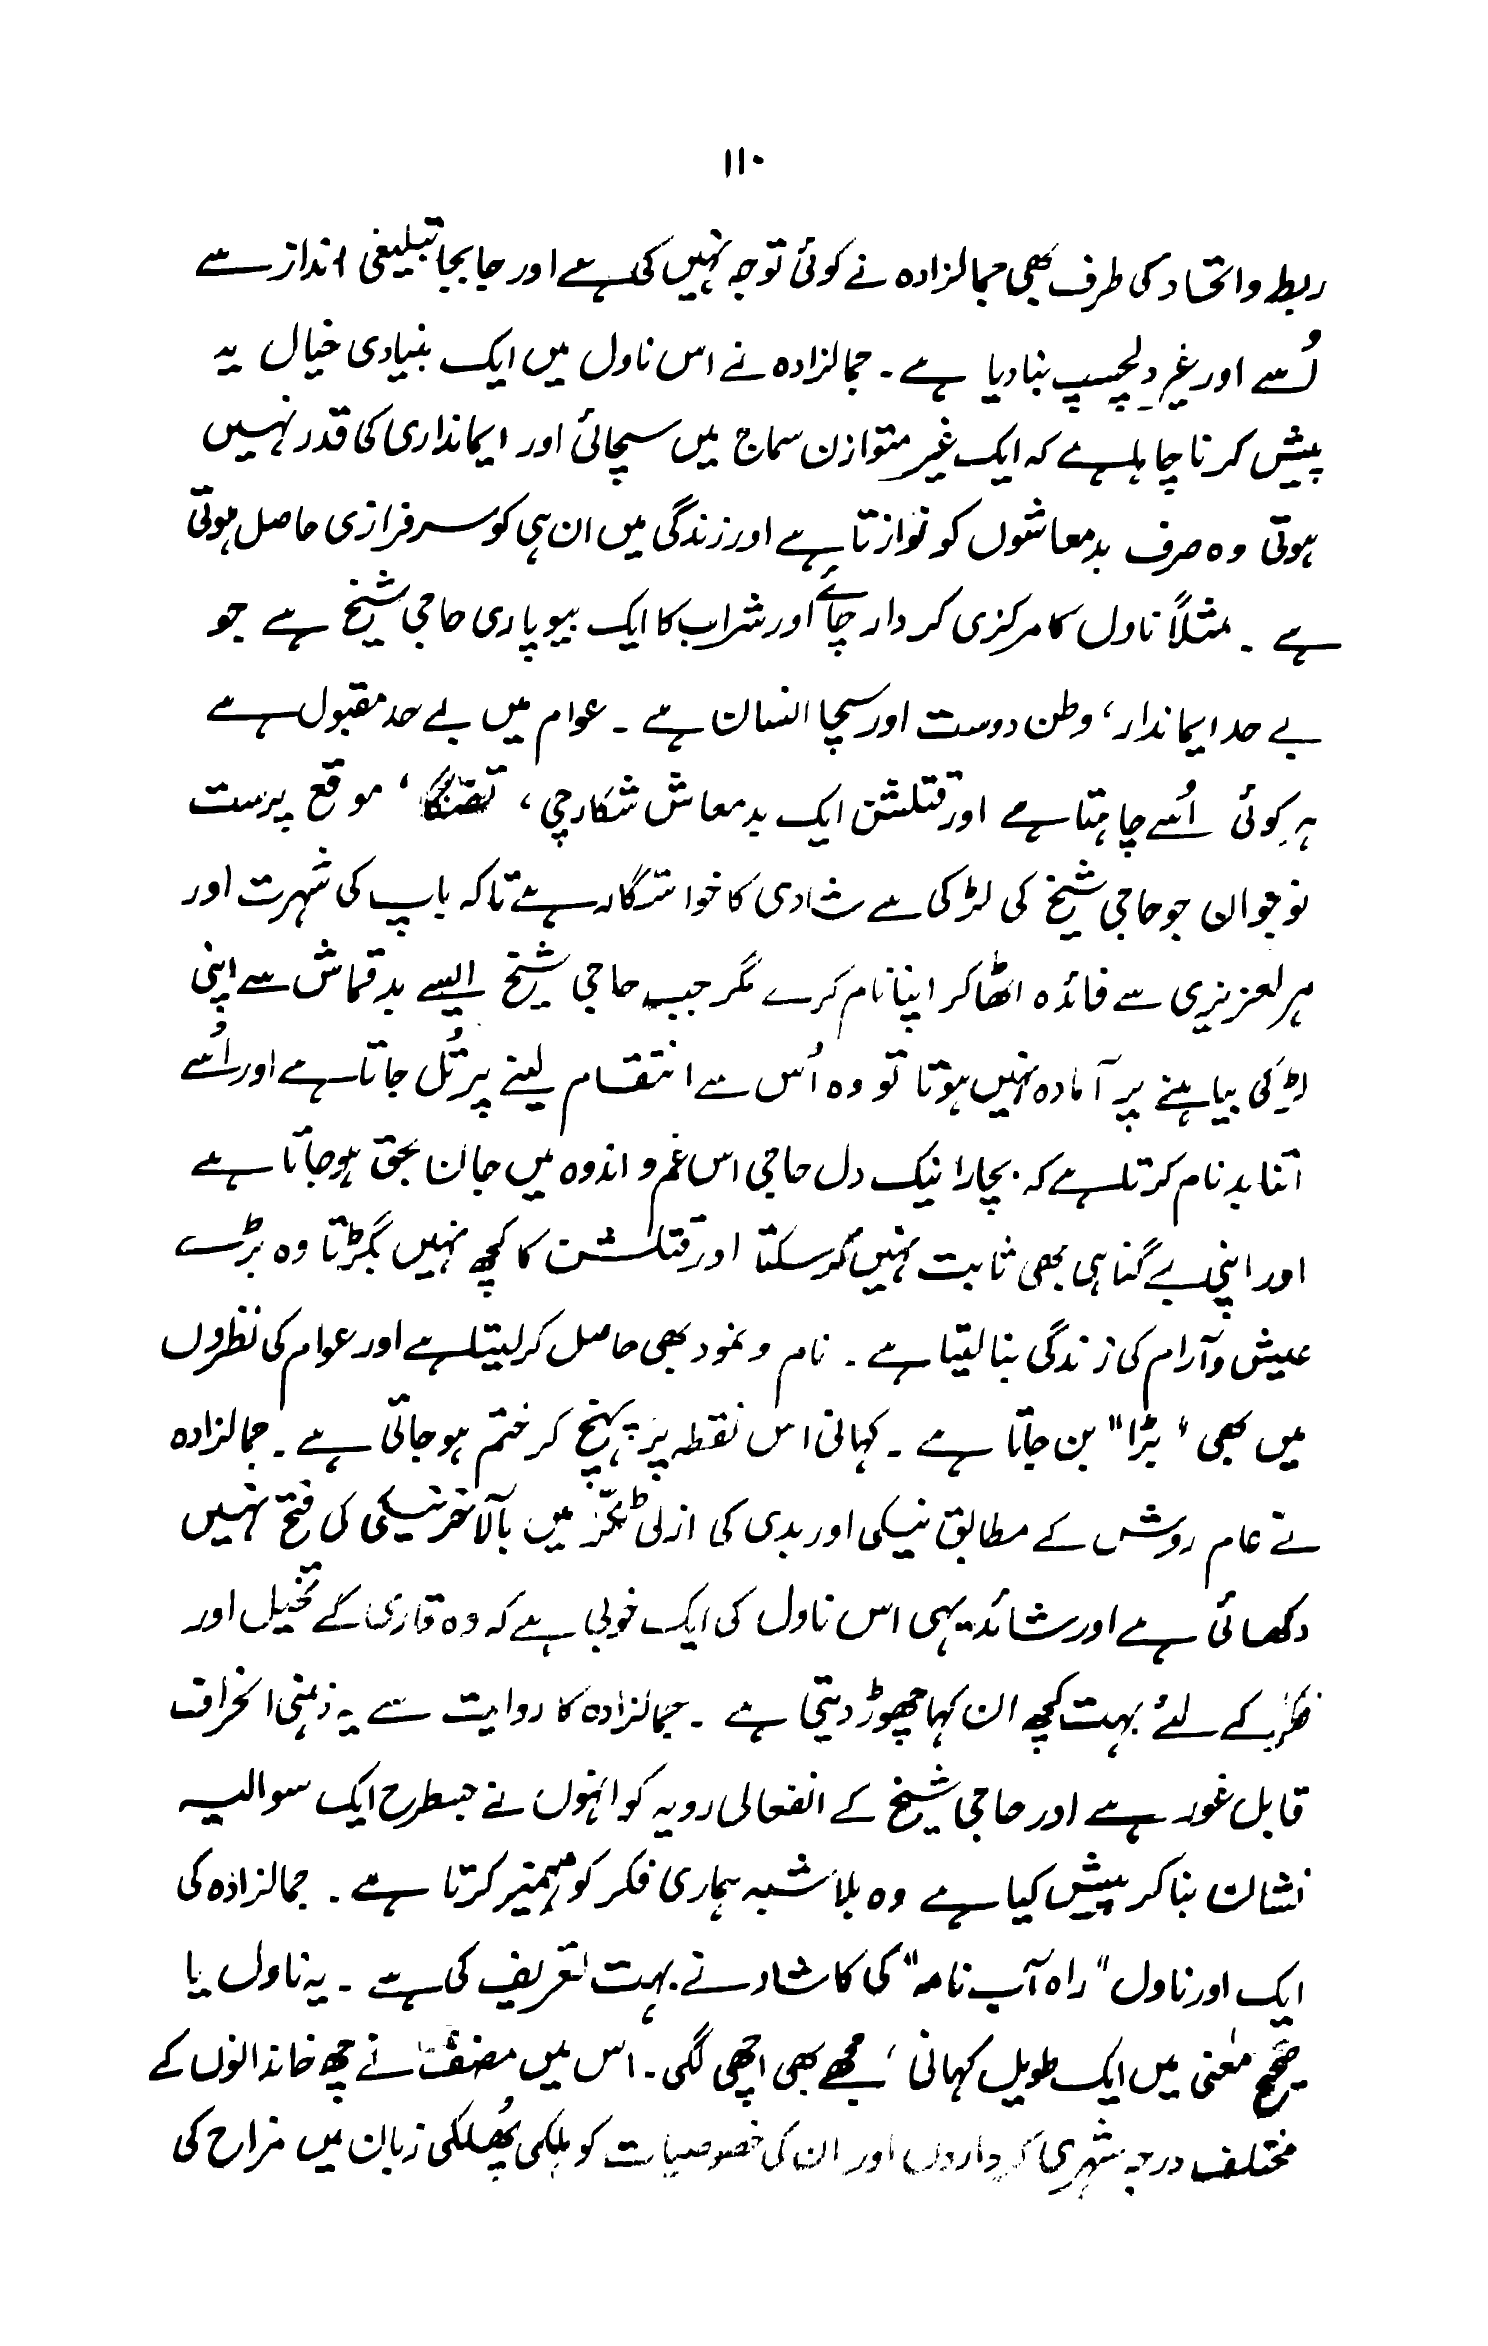 ۱۱۰
ربط واتحاد کی طرف بھی جمالزادہ نے کوئی توجہ نہیں کی ہے اور جابجا تبلیغی انداز سے
اُسے اور غیر دلچسپ بنا دیا ہے۔ جمالزادہ نے اس ناول میں ایک بنیادی خیال یہ
پیش کرنا چاہا ہے کہ ایک غیر متوازن سماج میں سچائی اور ایمانداری کی قدر نہیں
ہوتی وہ صرف بدمعاشوں کو نوازتا ہے اور زندگی میں ان ہی کو سرفرازی حاصل ہوتی
ہے ۔ مثلاً ناول کا مرکزی کردار چائے اور شراب کا ایک بیوپاری حاجی شیخ ہے جو
بے حد ایماندار، وطن دوست اور سچا انسان ہے ۔ عوام میں بے حد مقبول ہے
ہر کوئی اُسے چاہتا ہے اور قتلشن ایک بدمعاش شکارچی، ، موقع پرست
نوجوان جو حاجی شیخ کی لڑکی سے شادی کا خواستگار ہے تاکہ باپ کی شہرت اور
ہرلعزیزی سے فائدہ اٹھا کر اپنا نام کرے مگر جب حاجی شیخ ایسے بدقماش سے اپنی
لڑکی بیاہنے پر آمادہ نہیں ہوتا تو وہ اُس سے انتقام لینے پر تُل جاتا ہے اور اُسے
اتنا بدنام کرتا ہے کہ بچارا نیک دل حاجی اس غم و اندوہ میں جان بحق ہو جاتا ہے
اور اپنی بے گناہی بھی ثابت نہیں کر سکتا اور قتلشن کا کچھ نہیں بگڑتا وہ بڑے
عیش و آرام کی زندگی بنا لیتا ہے ۔ نام و نمود بھی حاصل کر لیتا ہے اور عوام کی نظروں
میں بھی "بڑا" بن جاتا ہے ۔ کہانی اس نقطہ پر پہنچ کر ختم ہو جاتی ہے ۔ جمالزادہ
نے عام روش کے مطابق نیکی اور بدی کی ازلی ٹکّر میں بآلاخر نیکی کی فتح نہیں
دکھائی ہے اور شائد یہی اس ناول کی ایک خوبی ہے کہ وہ قاری کے تخیل اور
فکر کے لئے بہت کچھ ان کہا چھوڑ دیتی ہے ۔ جمالزادہ کا روایت سے یہ ذہنی انحراف
قابل غور ہے اور حاجی شیخ کے انفعالی رویہ کو انہوں نے جسطرح ایک سوالیہ
نشان بنا کر پیش کیا ہے وہ بلا شبہ ہماری فکر کو مہمیز کرتا ہے ۔ جمالزادہ کی
ایک اور ناول "راہ آب نامہ" کی کاشاد نے بہت تعریف کی ہے ۔ یہ ناول یا
صحیح معنی میں ایک طویل کہانی ، مجھے بھی اچھی لگی ۔ اس میں مصنف نے چھ خاندانوں کے
مختلف درجہ شہری کرداروں اور ان کی خصوصیات کو ہلکی پُھلکی زبان میں مزاح کی